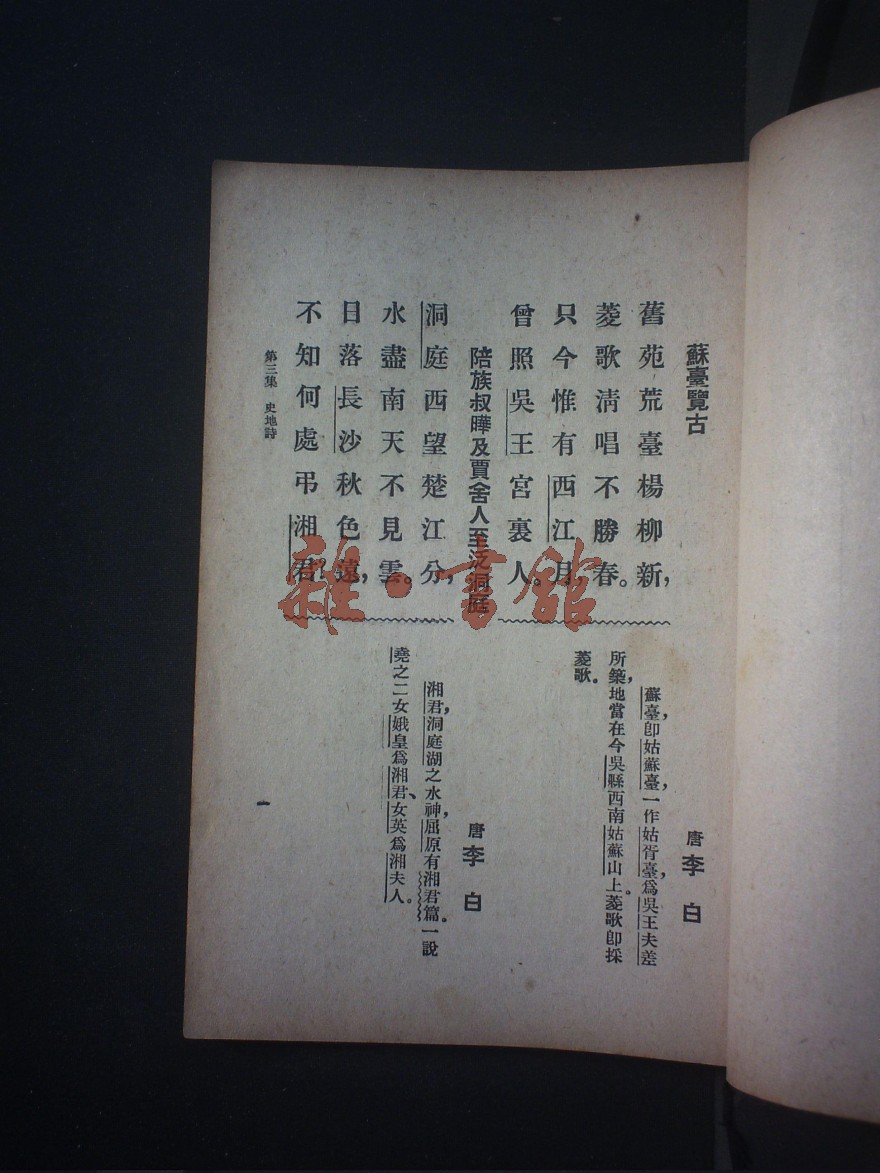 蘇臺覽古
唐 李白
舊苑荒臺楊柳新，
菱歌淸唱不勝春。
只今惟有西江月，
曾照吳王宮裏人。
蘇臺，卽姑蘇臺，一作姑胥臺，爲吳王夫差
所築，地當在今吳縣西南姑蘇山上。菱歌卽採
菱歌。
陪族叔曄及賈舍人至泛洞庭
唐 李白
洞庭西望楚江分，
水盡南天不見雲。
日落長沙秋色遠，
不知何處弔湘君？
湘君，洞庭湖之水神，屈原有湘君篇。一說
堯之二女娥皇爲湘君、女英爲湘夫人。
第三集 史地詩
一
雜·書館